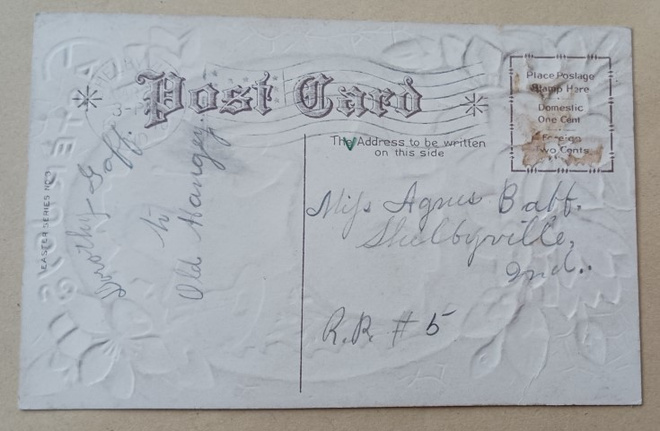 Post Card
Place Postage
Stamp Here
Domestic
One Cent
Foreign
Two Cents
The Address to be written
on this side
Miss Agnes Baff.
Shelbyville,
Ind.
R.R. # 5
Dorothy Goff.
to
Old
EASTER SERIES NO